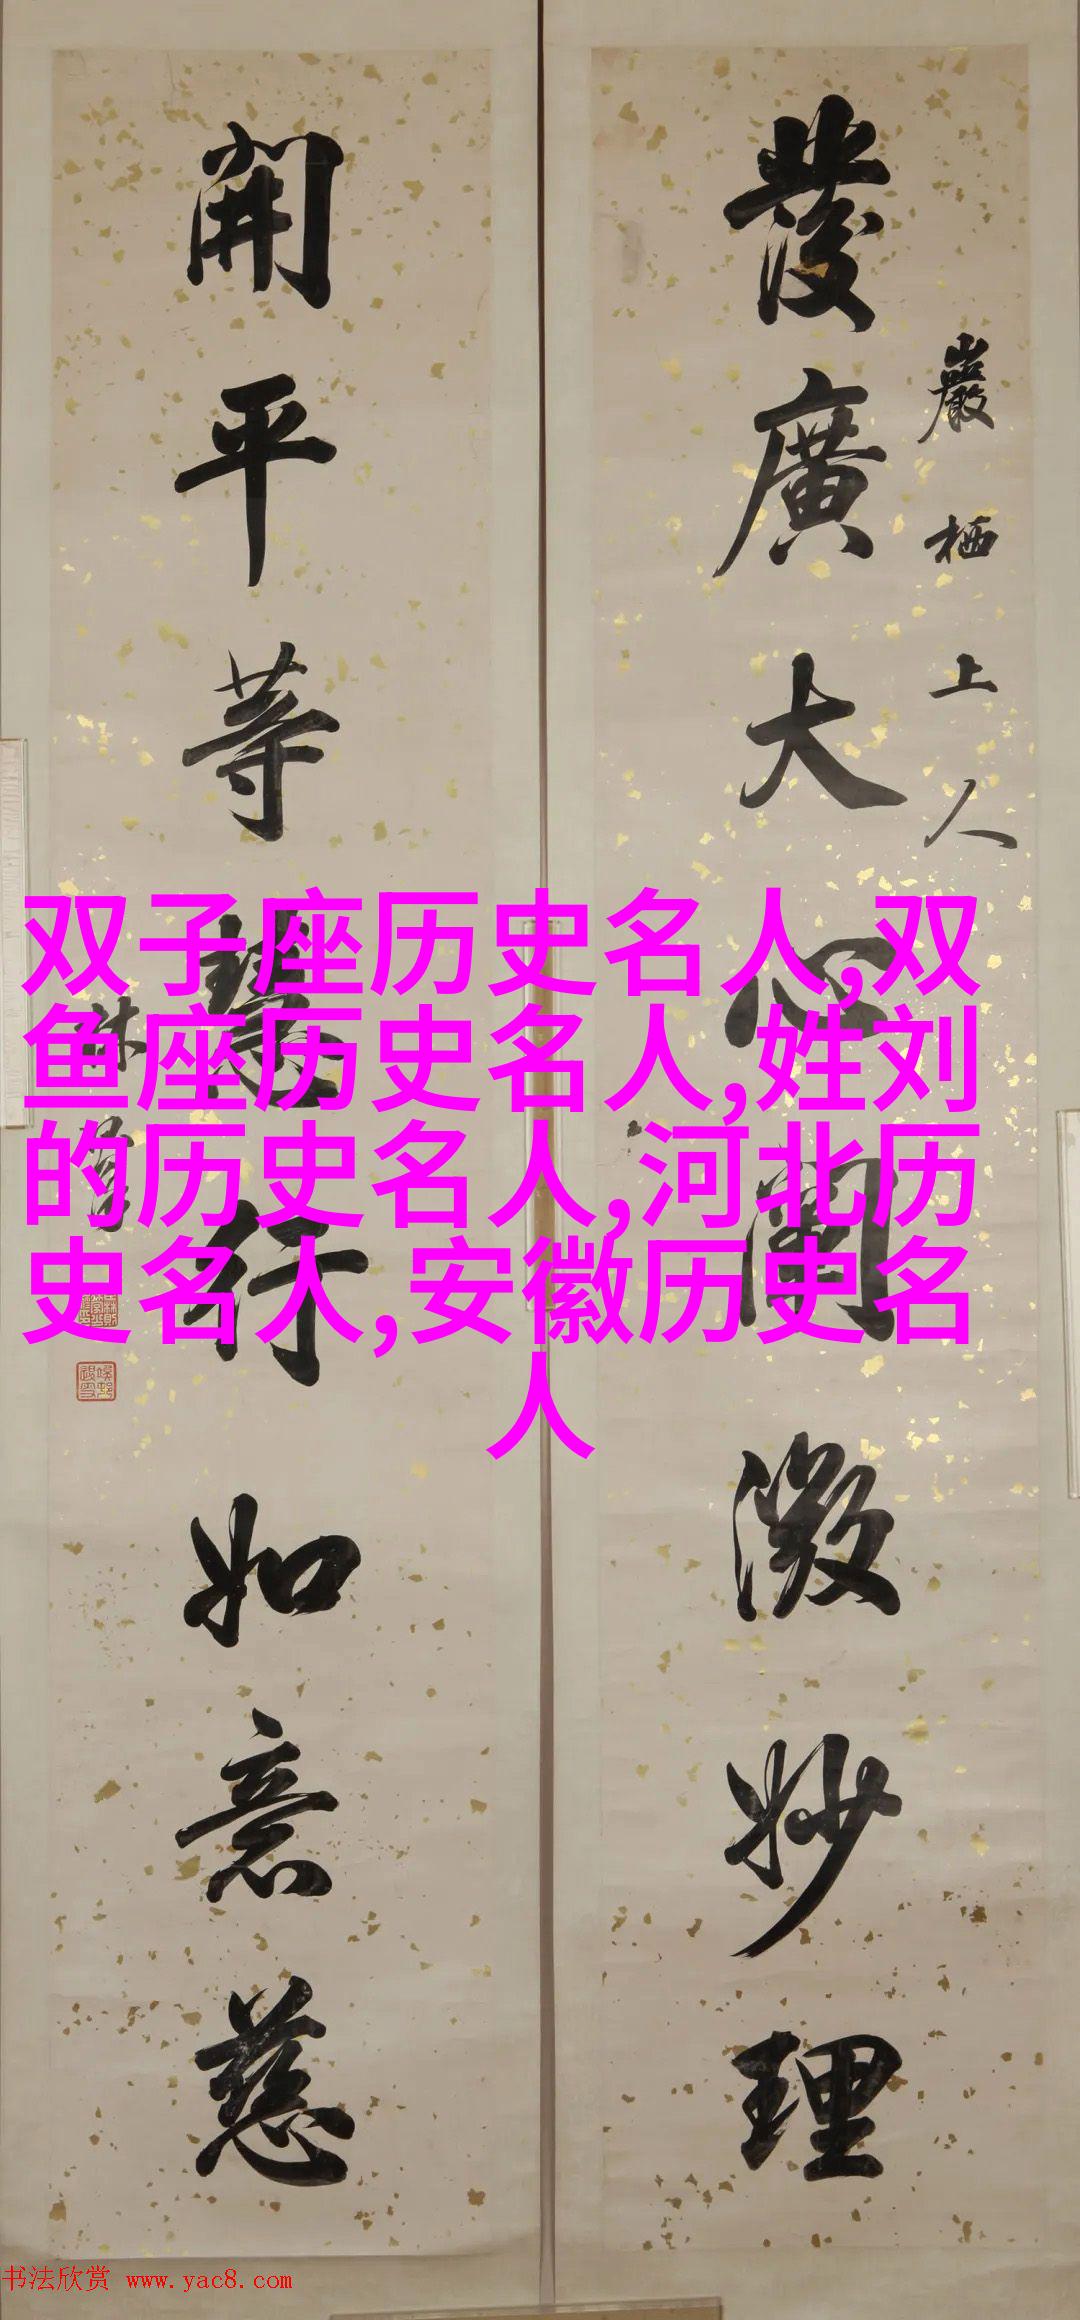 發廣大心闡微妙理
巖栖上人
開平等慧行如意慈
林
双子座历史名人,双
鱼座历史名人,姓刘
的历史名人,河北历
史名人,安徽历史名
人
书法欣赏 www.yac8.com